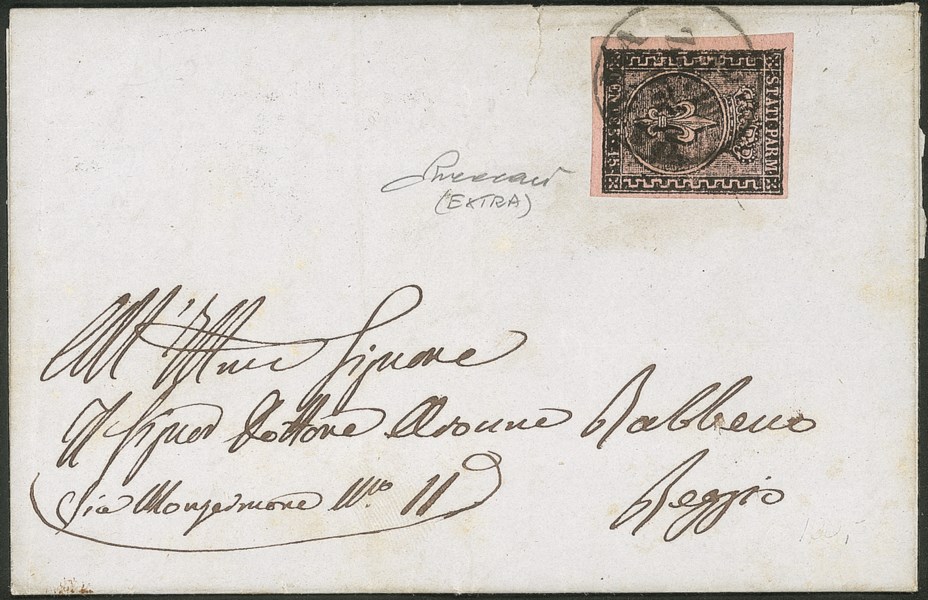 STATI PARM.
CENT. 15
(EXTRA)
All' Illmo Signore
Il Signor Dottore Aronne Rabbeno
Via Monzermone No. 11
Reggio